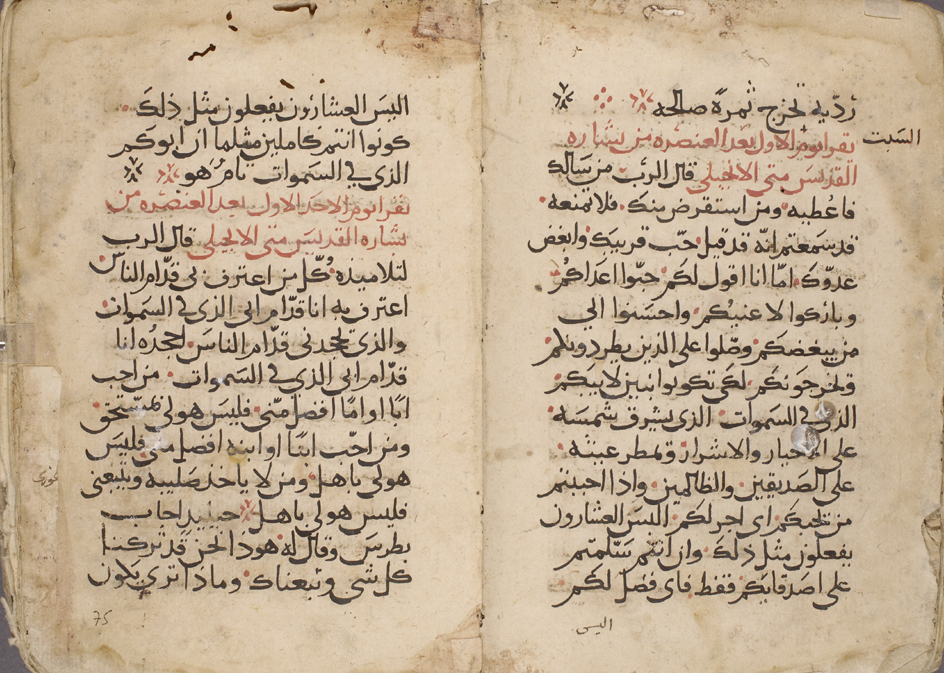 رديه تخرج ثمرة صالحه
السبت
تقرا يوم الاول بعد العنصره من بشاره
القديس متى الانجيلي قال الرب من سالك
فاعطيه ومن استقرض منك فلا تمنعه
قد سمعتم انّه قد قيل حبّ قريبك وابغض
عدوّك امّا انا اقول لكم حبّوا اعداكم
وباركوا لاعنيكم واحسنوا الي
من يبغضكم وصّلوا على الذين يطردونكم
ويخرجونكم لكي تكونوا بنين لابيكم
الذي في السموات الذي يشرق شمسه
على الاخيار والاشرار ويمطر غيثه
على الصديقين والظالمين واذا احببتم
من يحبكم اي اجر لكم اليس العشارون
يفعلون مثل ذلك وان انتم سلّمتم
على اصدقايكم فقط فاي فضل لكم
اليس
اليس العشارون يفعلون مثل ذلك
كونوا انتم كاملين مثلما ان ابوكم
الذي في السموات تام هو
تقرا يوم الاحد الاول بعد العنصره من
بشاره القديس متى الانجيلي قال الرب
لتلاميذه كُلّ من اعترف بي قدّام الناس
اعترف به انا قدّام ابي الذي في السموات
والذي يجحدني قدّام الناس اجحدُه انا
قدّام ابي الذي في السموات من احب
ابًا او امًا افضل منّي فليس هو لي بمستحق
ومن احّب ابنًا او ابنه افضل مني فليس
هو لي باهل ومن لا ياخذ صليبه ويتبعني
فليس هو لي باهل حينيدٍ اجاب
بطرس وقال له هوذا نحن قد تركنا
كل شي وتبعناك وماذا تري يكون
75